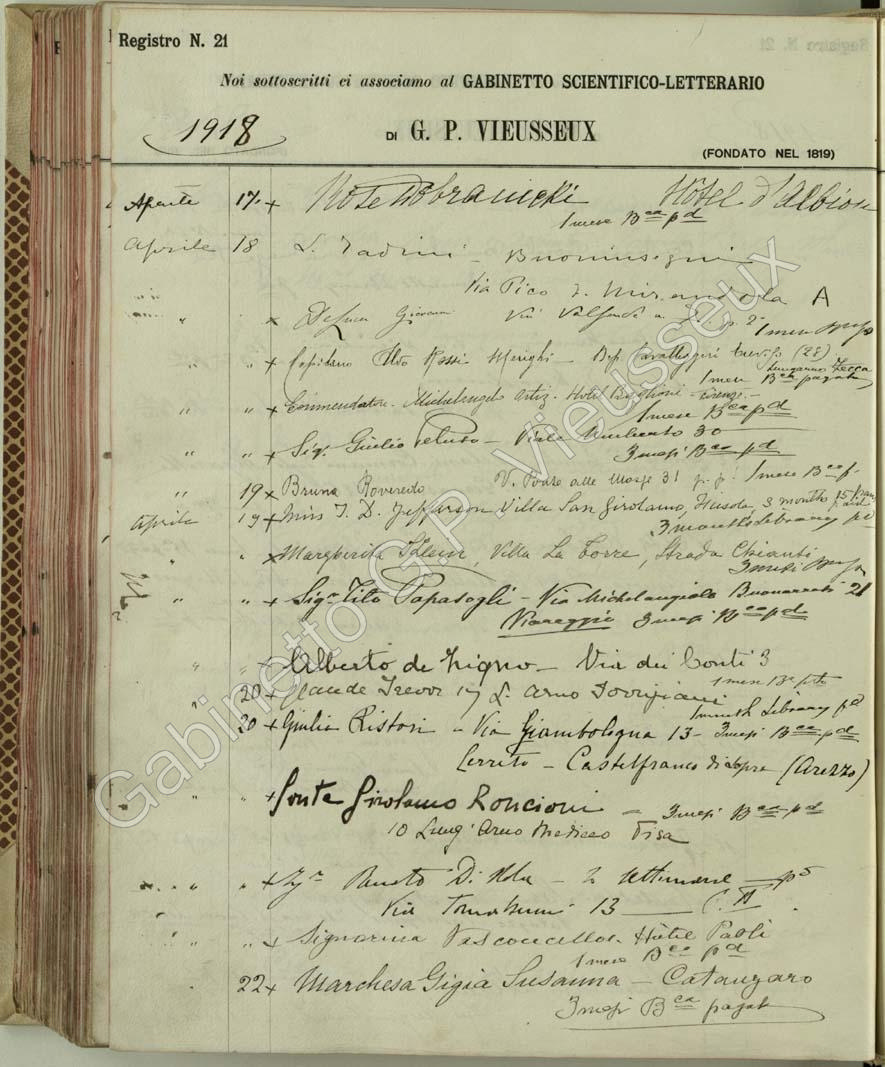 Registro N. 21
Noi sottoscritti ci associamo al GABINETTO SCIENTIFICO-LETTERARIO
1918
DI G. P. VIEUSSEUX
(FONDATO NEL 1819)
Aprile 17 x Rose Branicki Hôtel d'Albion
1 mese Bca pd
Aprile 18 L. Tadini - Buoninsegni
Via Pico d. Mirandola A
" x De Luca Giovanni Via Valfonda
1 mese
" " x Capitano Rossi - Cavalleggeri (28)
Lungarno Zecca
1 mese Bca pagato
" " x Commendatore Michelangelo Ortiz - Hotel Baglioni - Firenze -
1 mese Bca pd
" " x Sig. Giulio - Viale Umberto 30
3 mesi Bca pd
" 19 x Bruna Rovereto V. Ponte alle Mosse 31 p. p. 1 mese Bca p.
Aprile 19 x Miss T. D. Jefferson Villa San Girolamo, Fiesole, 3 months
3 months Library pd
" " x Margherita Klein, Villa La Torre, Strada Chianti
3 mesi
" " x Sigr Tito Papasogli - Via Michelangiolo Buonarroti 21
Viareggio 3 mesi Bca pd
" " x Alberto de Zigno - Via dei Conti 3
1 mese Bca
" 20 x Claude Trevor 17 L. Arno Torrigiani
1 month Library pd
20 x Giulia Ristori - Via Giambologna 13 - 3 mesi Bca pd
Cerreto - Castelfranco di Sopra (Arezzo)
" " x Conte Girolamo Roncioni - 3 mesi Bca pd
10 Lung'Arno Mediceo Pisa
" " x Di - 2 settimane
Via Tornabuoni 13
" " x Signorina Vasconcellos - Hôtel Paoli
1 mese Bca pd
22 x Marchesa Gigia Susanna - Catanzaro
3 mesi Bca pagato
Gabinetto G.P. Vieusseux